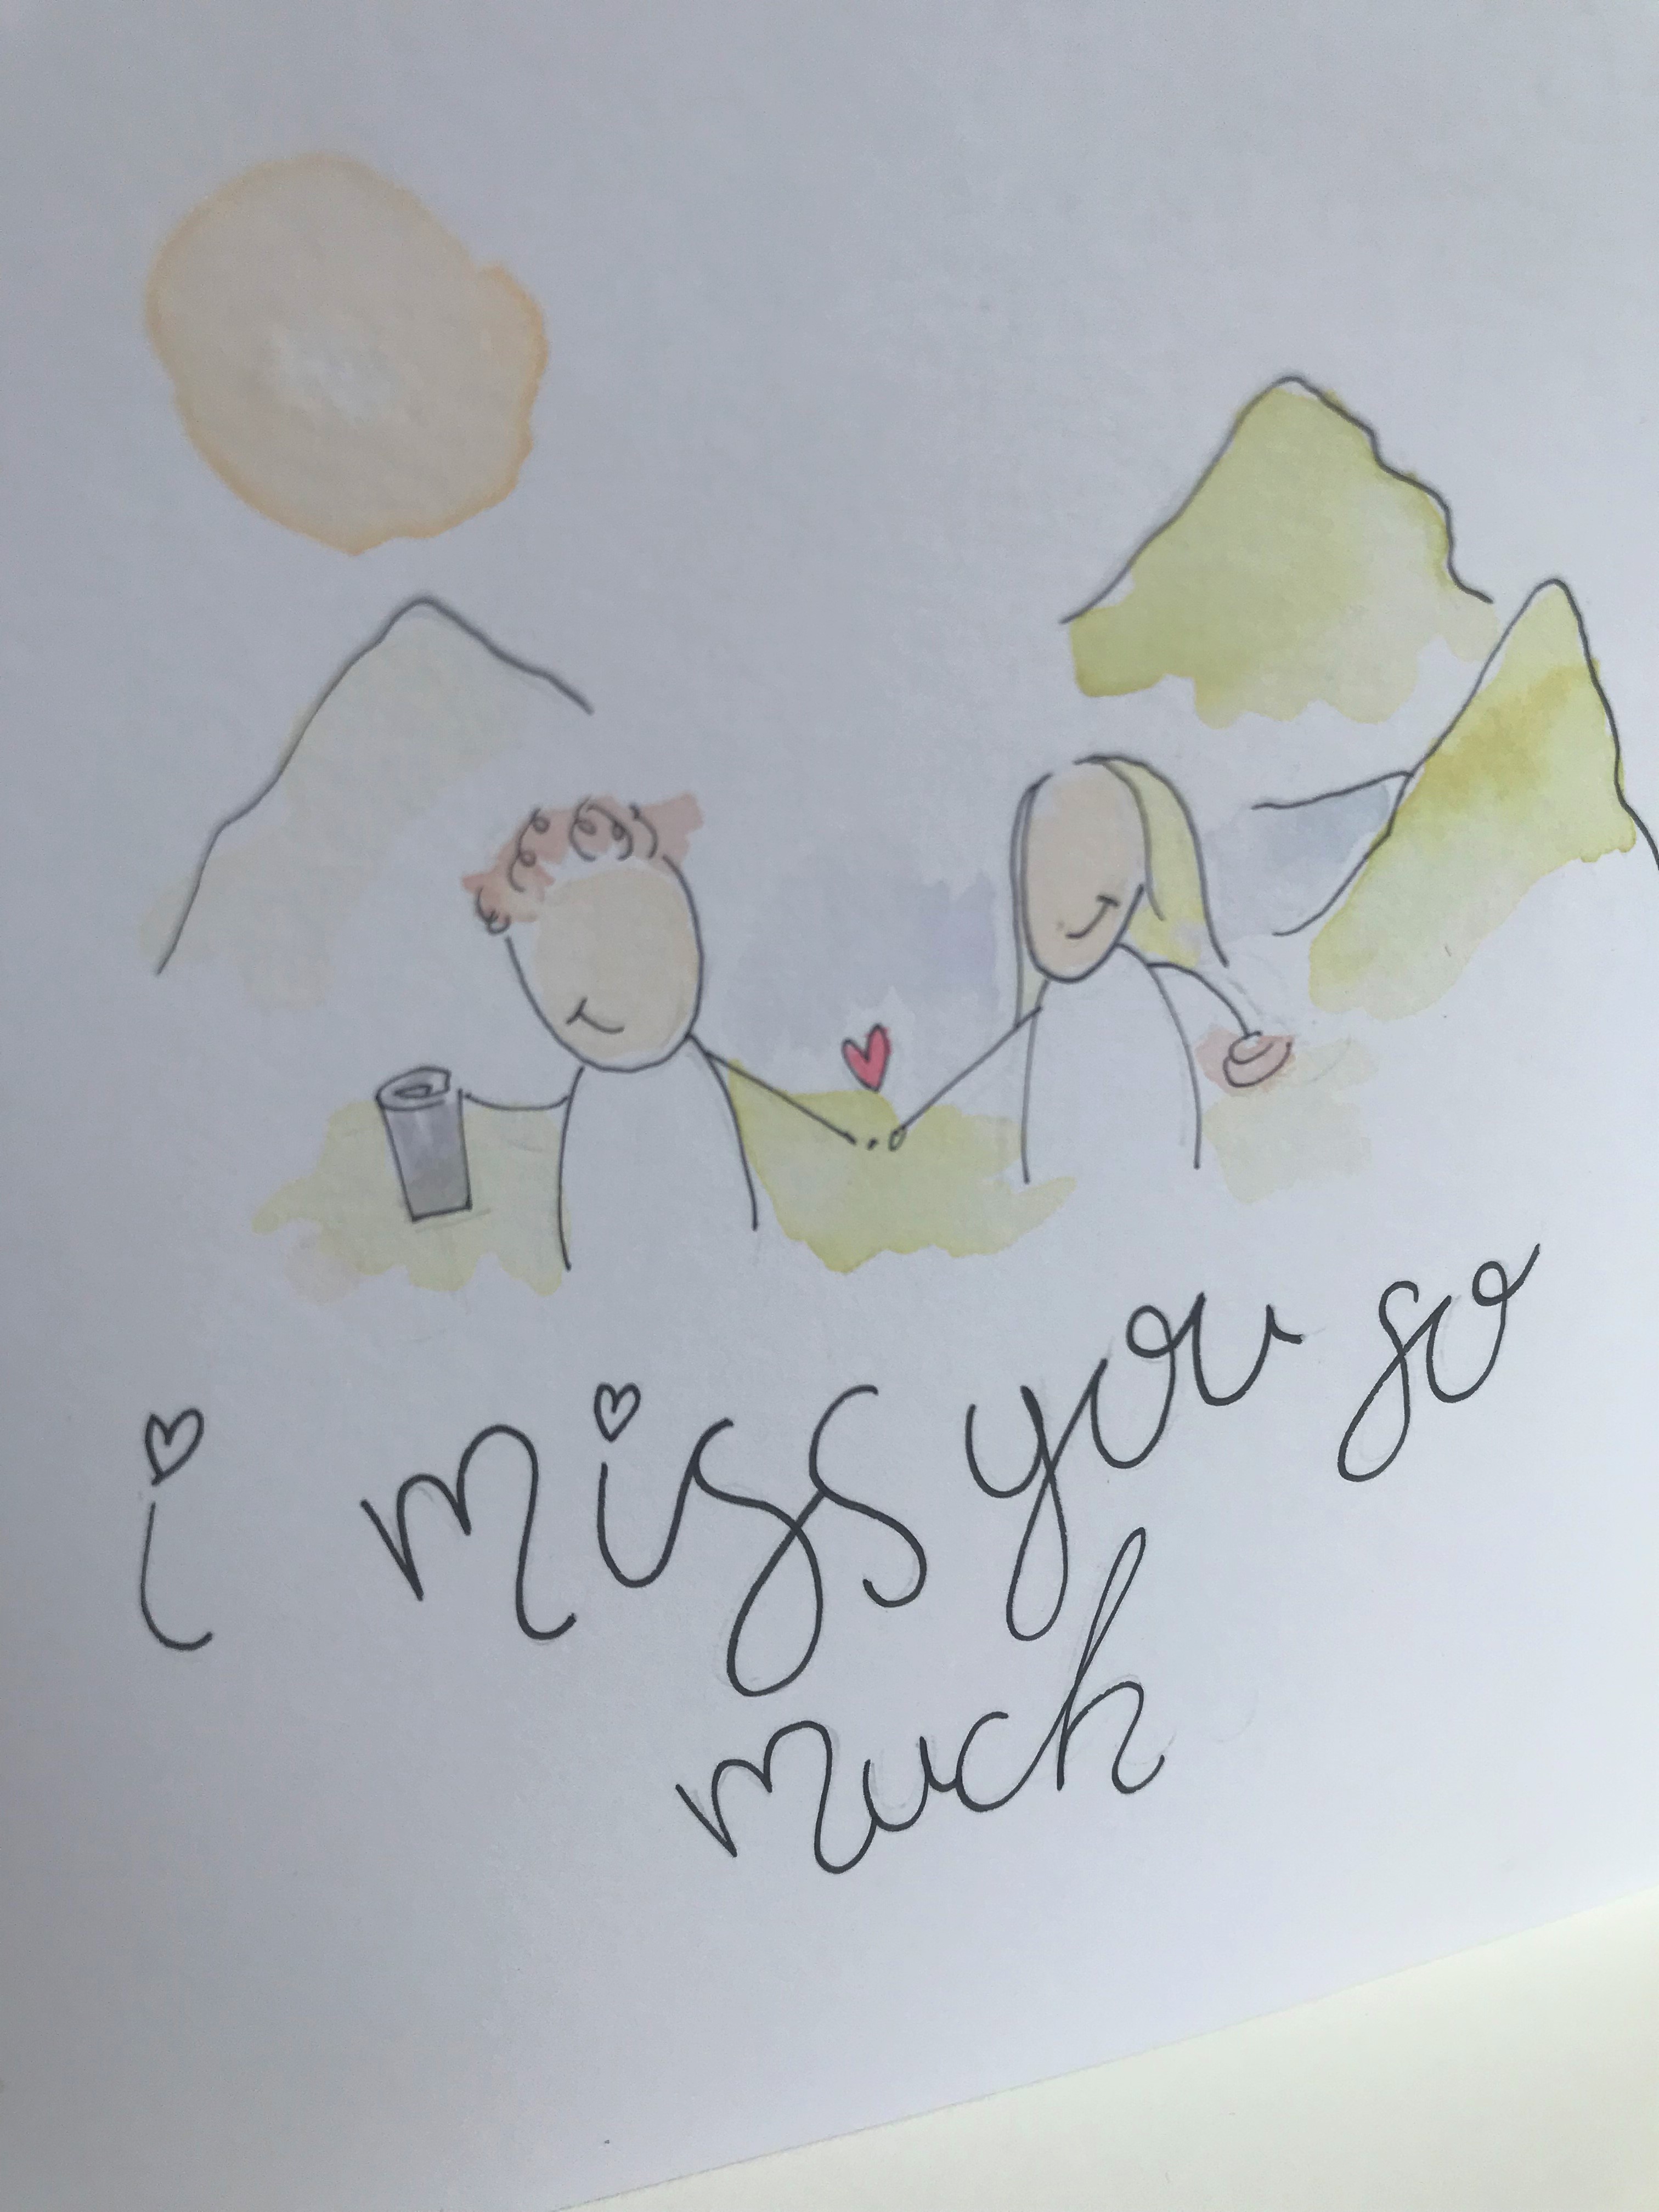 i miss you so
much